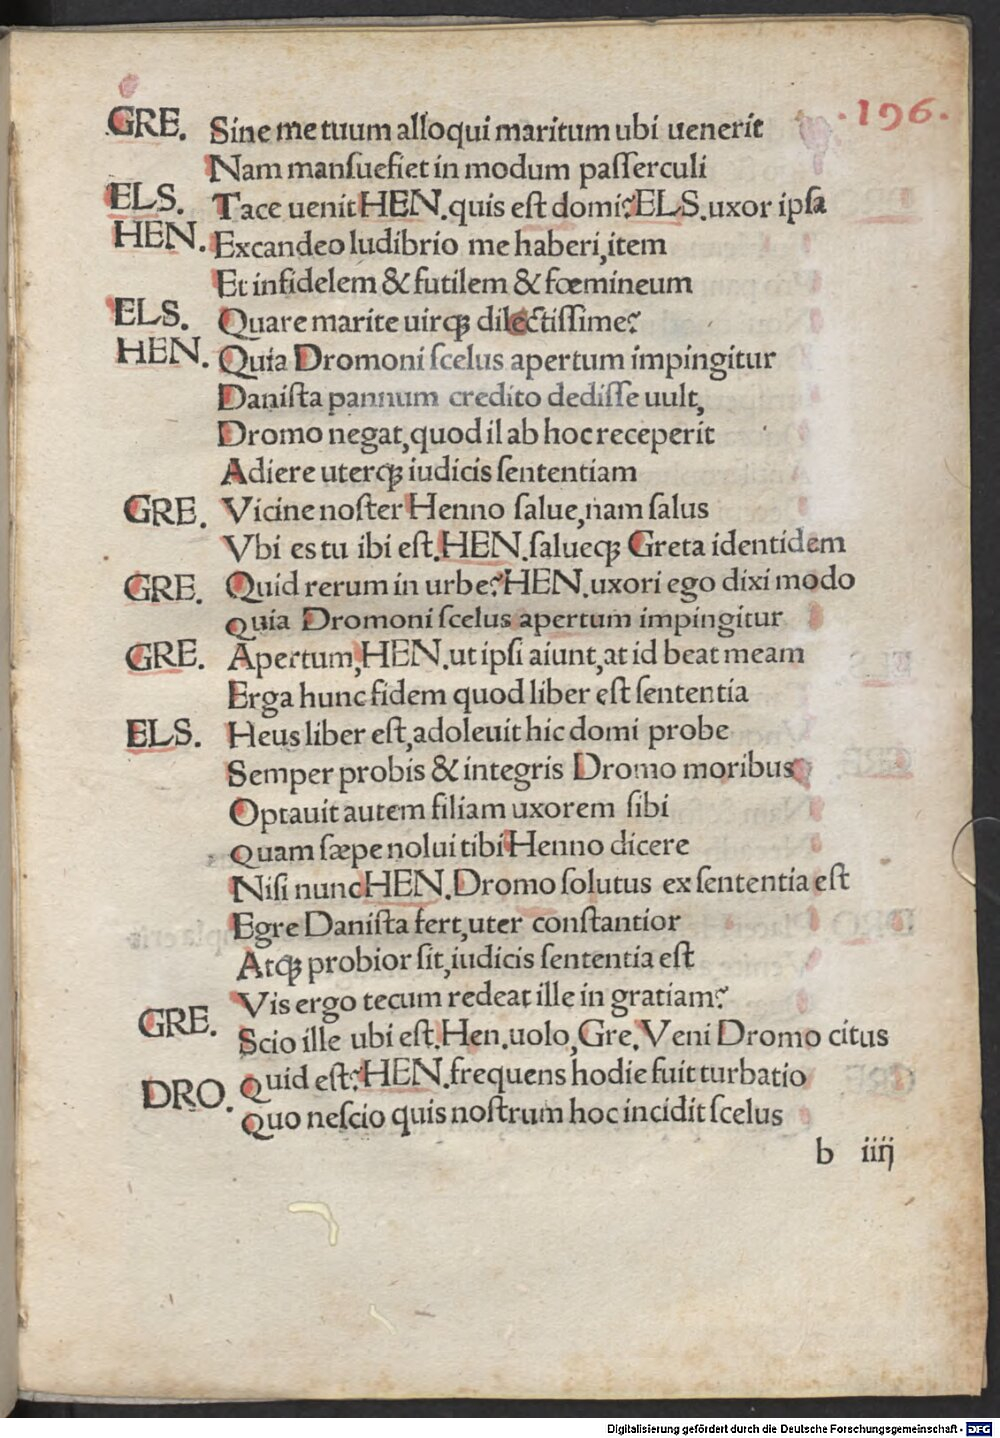 .196.
GRE. Sine me tuum alloqui maritum ubi uenerit
Nam mansuefiet in modum passerculi
ELS. Tace uenit HEN. quis est domi? ELS. uxor ipsa
HEN. Excandeo ludibrio me haberi, item
Et infidelem & futilem & fœmineum
ELS. Quare marite uirqꝫ dilectissime?
HEN. Quia Dromoni scelus apertum impingitur
Danista pannum credito dedisse uult,
Dromo negat, quod il ab hoc receperit
Adiere uterqꝫ iudicis sententiam
GRE. Vicine noster Henno salue, nam salus
Vbi es tu ibi est. HEN. salueqꝫ Greta identidem
GRE. Quid rerum in urbe? HEN. uxori ego dixi modo
Quia Dromoni scelus apertum impingitur
GRE. Apertum, HEN. ut ipsi aiunt, at id beat meam
Erga hunc fidem quod liber est sententia
ELS. Heus liber est, adoleuit hic domi probe
Semper probis & integris Dromo moribus
Optauit autem filiam uxorem sibi
Quam sæpe nolui tibi Henno dicere
Nisi nunc HEN. Dromo solutus ex sententia est
Egre Danista fert, uter constantior
Atqꝫ probior sit, iudicis sententia est
Vis ergo tecum redeat ille in gratiam?
GRE. Scio ille ubi est. Hen. uolo, Gre. Veni Dromo citus
DRO. Quid est? HEN. frequens hodie fuit turbatio
Quo nescio quis nostrum hoc incidit scelus
b iiij
Digitalisierung gefördert durch die Deutsche Forschungsgemeinschaft - DFG